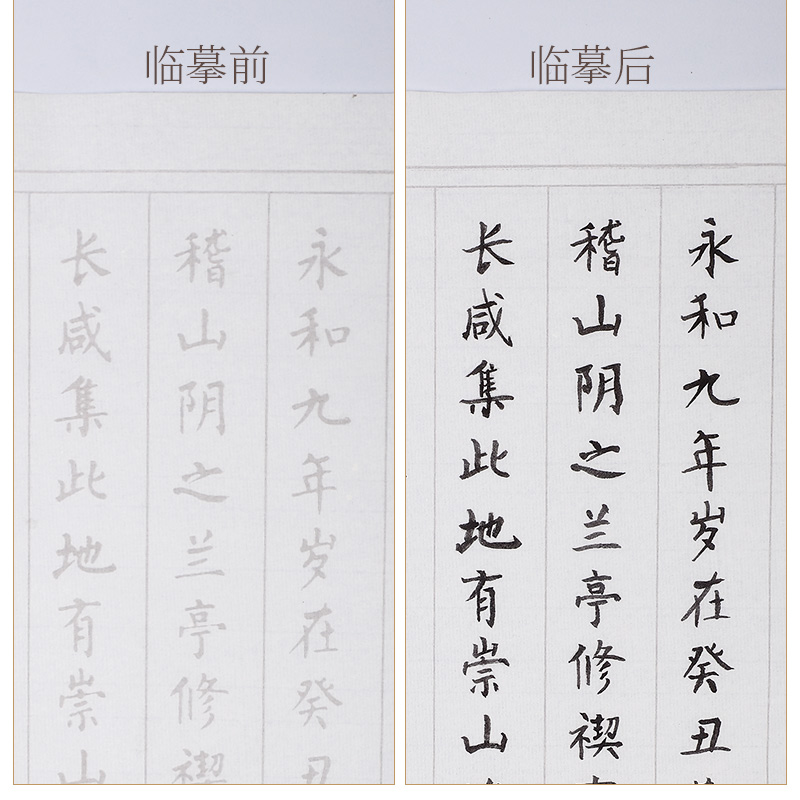 临摹前
永和九年岁在癸丑
稽山阴之兰亭修禊
长咸集此地有崇山
临摹后
永和九年岁在癸丑
稽山阴之兰亭修禊
长咸集此地有崇山